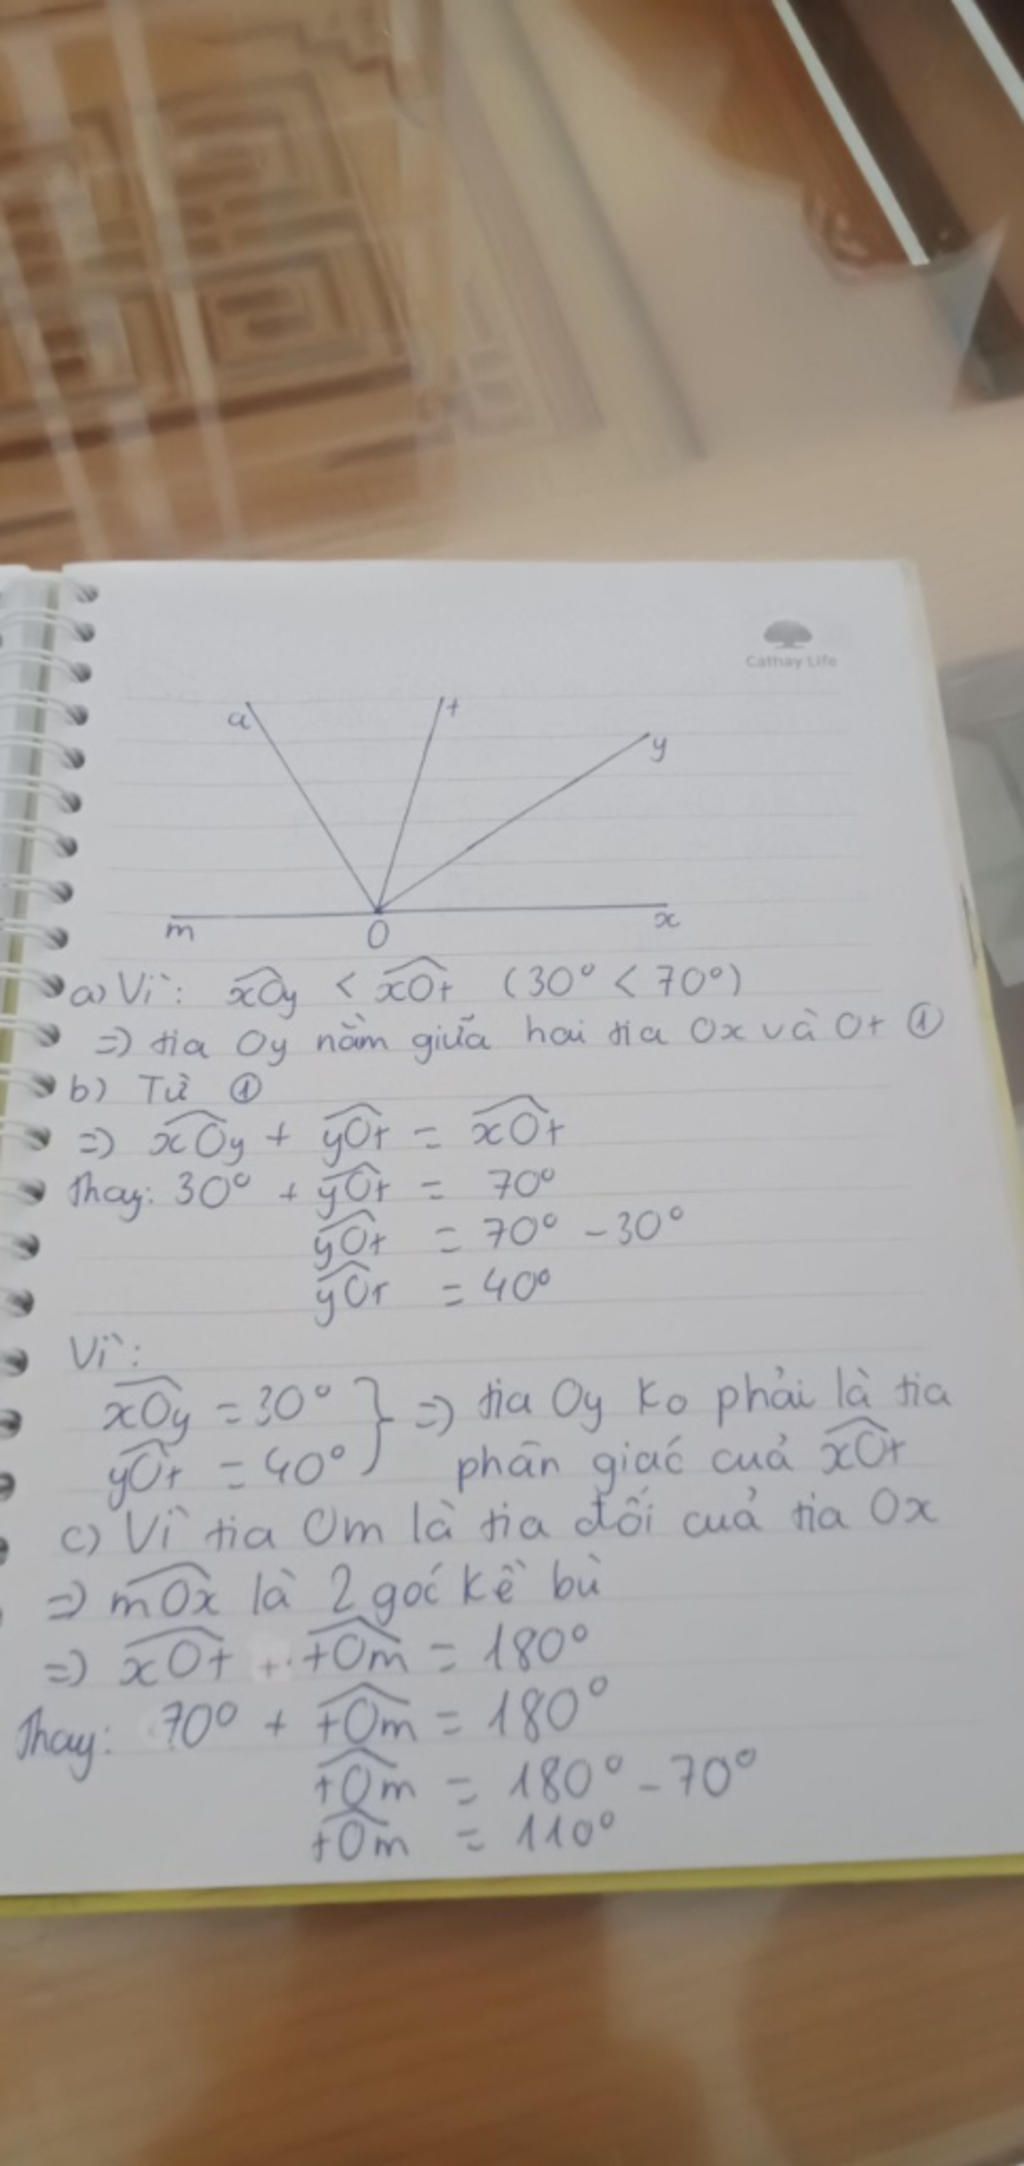 Cathay Life
a
t
y
m
O
x
a) Vì: xOy < xOt (30° < 70°)
=> tia Oy nằm giữa hai tia Ox và Ot ①
b) Từ ①
=> xOy + yOt = xOt
Thay: 30° + yOt = 70°
yOt = 70° - 30°
yOt = 40°
Vì:
xOy = 30° } => tia Oy ko phải là tia
yOt = 40° phân giác của xOt
c) Vì tia Om là tia đối của tia Ox
=> mOx là 2 góc kề bù
=> xOt + tOm = 180°
Thay: 70° + tOm = 180°
tOm = 180° - 70°
tOm = 110°